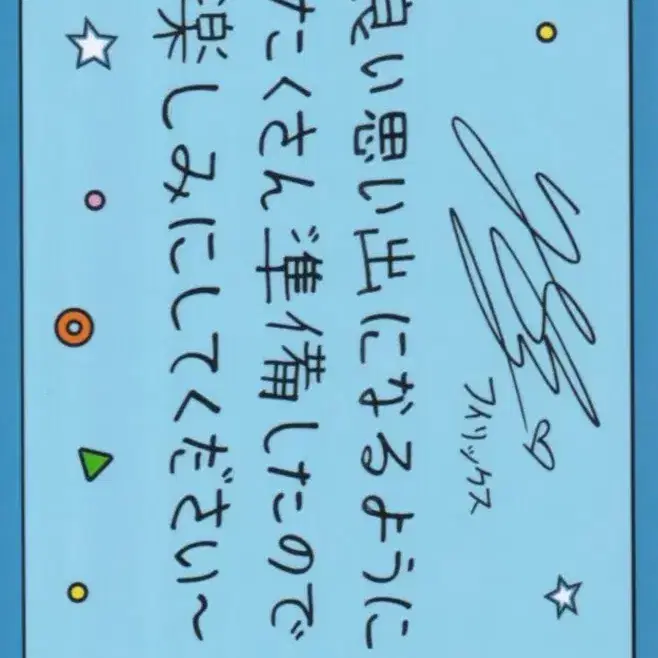 フィリックス
良い思い出になるように
たくさん準備したので
楽しみにしてください〜